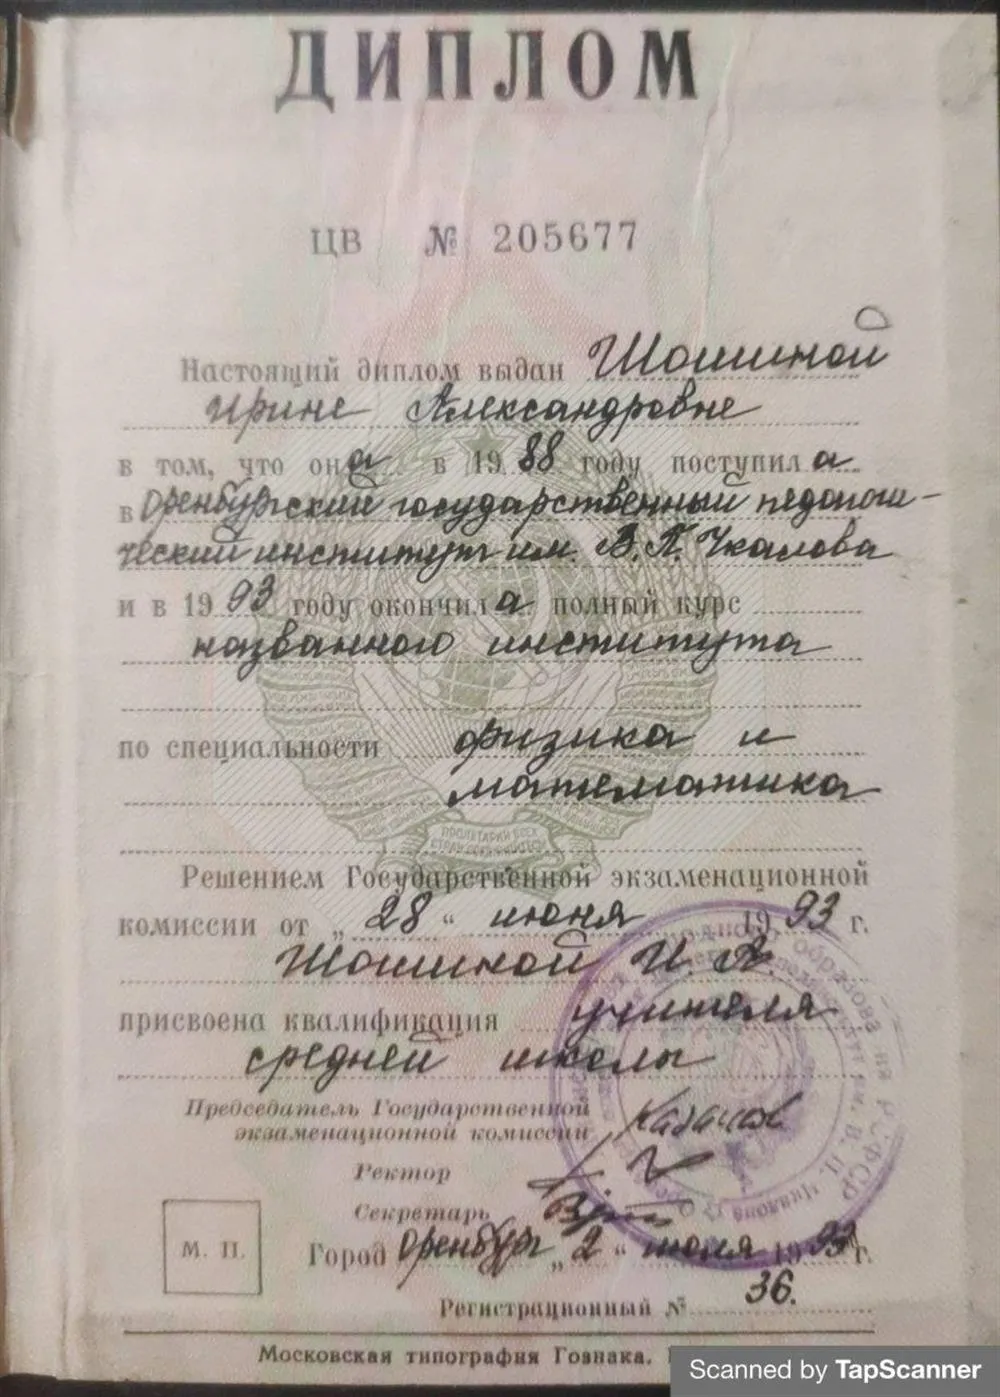 ДИПЛОМ
ЦВ № 205677
Настоящий диплом выдан Шошиной
Ирине Александровне
в том, что она в 1988 году поступила
в Оренбургский государственный педагоги-
ческий институт им. В.П. Чкалова
и в 1993 году окончила полный курс
названного института
по специальности физика и
математика
ПРОЛЕТАРИИ ВСЕХ
СТРАН СОЕДИНЯЙТЕСЬ
Решением Государственной экзаменационной
комиссии от „28" июня 1993 г.
Шошиной И. А.
присвоена квалификация учителя
средней школы
Председатель Государственной
экзаменационной комиссии
Ректор
Секретарь
М. П.
Город Оренбург „2" июля 1993 г.
Регистрационный № 36.
Московская типография Гознака.
Scanned by TapScanner